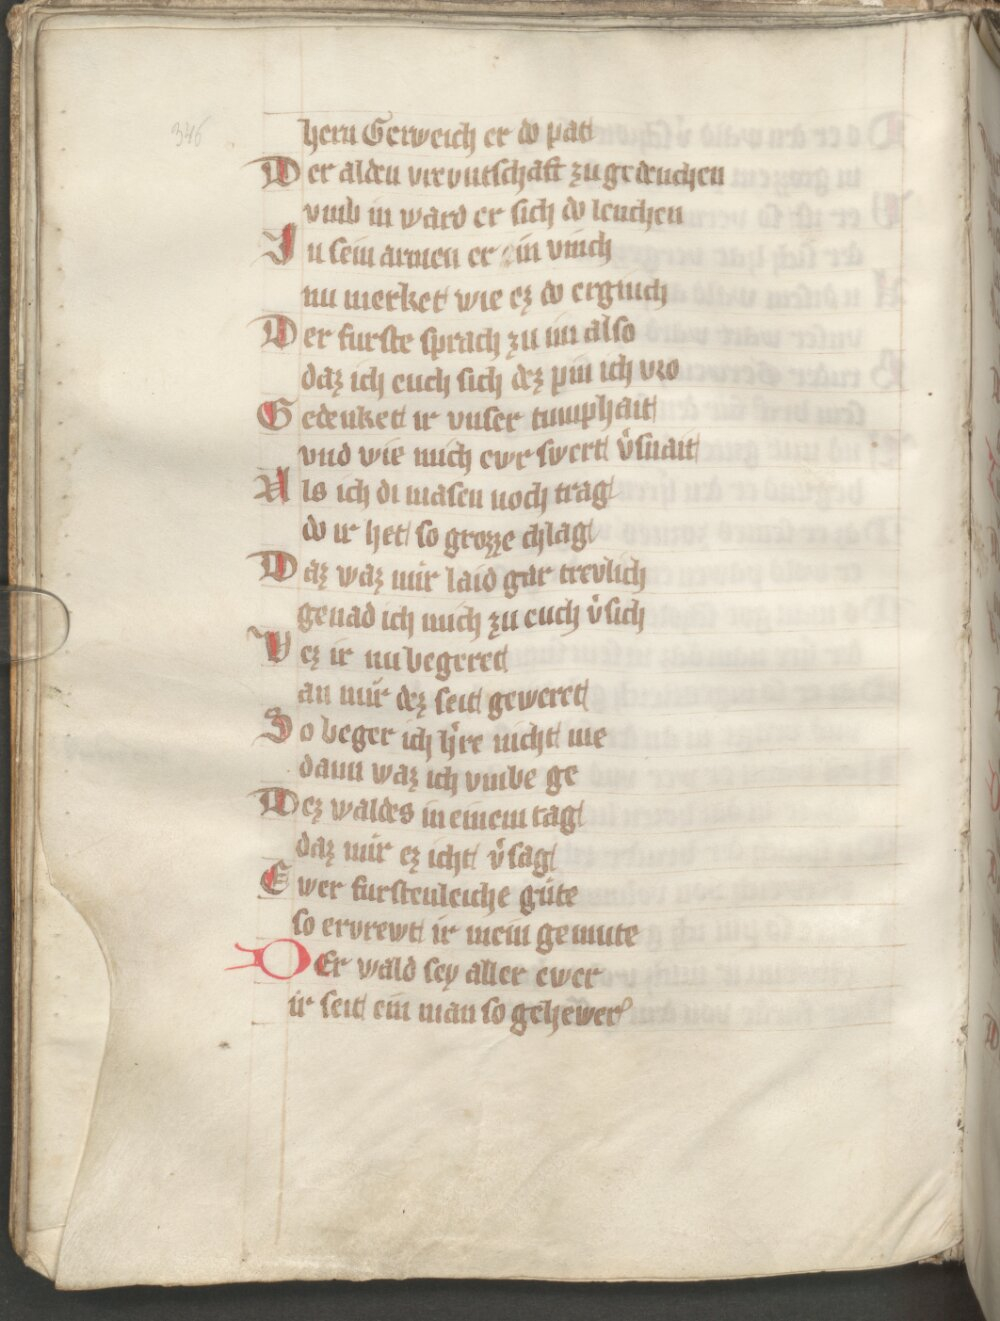 346
hern Gerweich er do pat
Der alden vrevntschaft zu gedenchen
vmb in ward er sich do lenchen
In sein armen er in vinch
nu merket wie ez do erginch
Der furste sprach zu im also
daz ich euch sich dez pin ich vro
Gedenket ir vnser tumphait
vnd wie mich ewr swert v̓snait
Als ich di masen noch trag
do ir het so grozze chlag
Daz waz mir laid gar trevlich
genad ich mich zu euch v̓sich
Wez ir nu begeret
an mir dez seit geweret
So beger ich h̓re nicht me
dann waz ich vmbe ge
Dez waldes in einem tag
daz mir ez icht v̓sag
Ewer furstenleiche güte
so ervrewt ir mein gemute
DEr wald sey aller ewer
ir seit ein man so gehewer